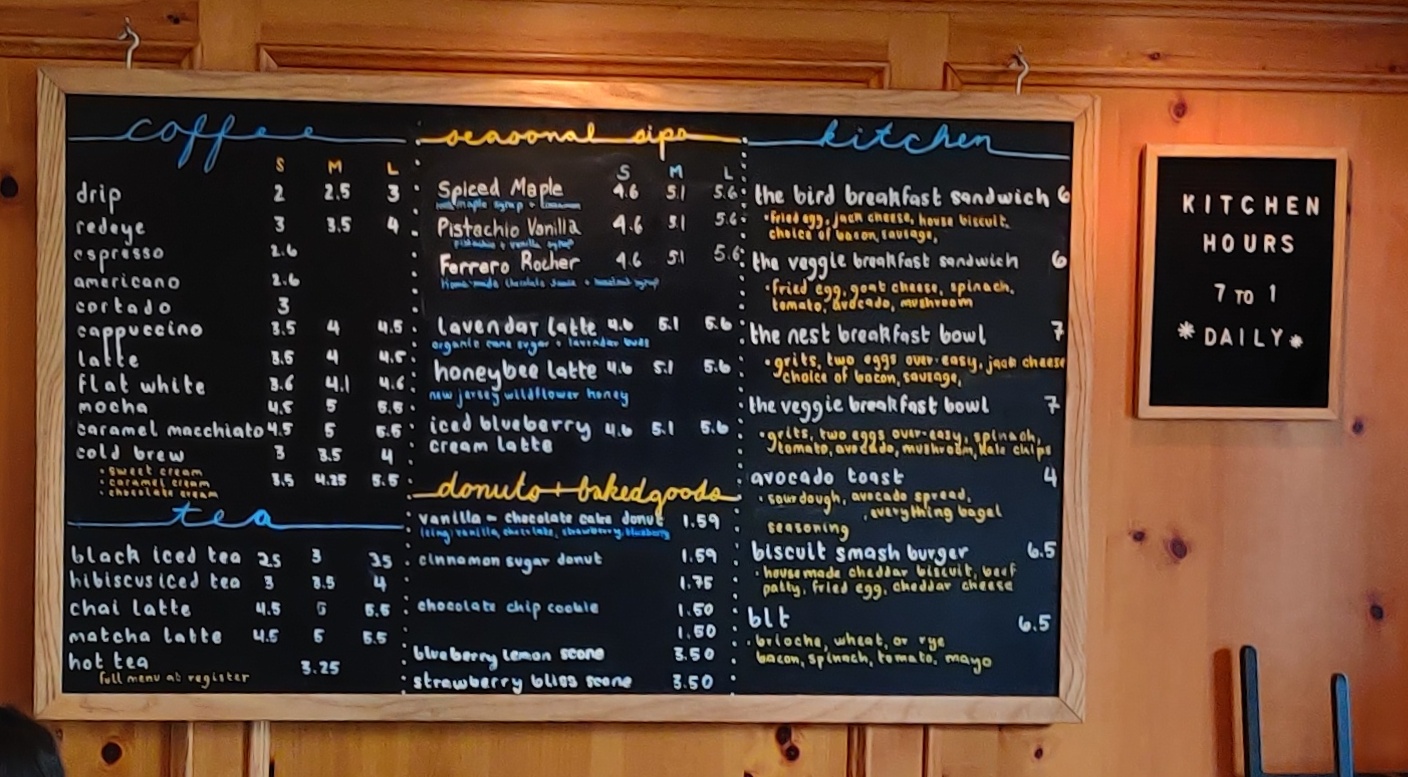 coffee
S M L
drip 2 2.5 3
redeye 3 3.5 4
espresso 2.6
americano 2.6
cortado 3
cappuccino 3.5 4 4.5
latte 3.5 4 4.5
flat white 3.6 4.1 4.6
mocha 4.5 5 5.5
caramel macchiato 4.5 5 5.5
cold brew 3 3.5 4
• sweet cream
• caramel cream 3.5 4.25 5.5
• chocolate cream
tea
black iced tea 25 3 35
hibiscus iced tea 3 3.5 4
chai latte 4.5 5 5.5
matcha latte 4.5 5 5.5
hot tea 3.25
full menu at register
seasonal sips
S M L
Spiced Maple 4.6 5.1 5.6
maple syrup +
Pistachio Vanilla 4.6 5.1 5.6
pistachio + vanilla syrup
Ferrero Rocher 4.6 5.1 5.6
Homemade chocolate sauce + hazelnut syrup
lavendar latte 4.6 5.1 5.6
organic cane sugar + lavendar buds
honeybee latte 4.6 5.1 5.6
new jersey wildflower honey
iced blueberry 4.6 5.1 5.6
cream latte
donuts + baked goods
vanilla - chocolate cake donut 1.59
icing: vanilla, chocolate, strawberry, blueberry
cinnamon sugar donut 1.59
1.75
chocolate chip cookie 1.50
1.50
blueberry lemon scone 3.50
strawberry bliss scone 3.50
kitchen
the bird breakfast sandwich 6
• fried egg, jack cheese, house biscuit,
choice of bacon, sausage,
the veggie breakfast sandwich 6
• fried egg, goat cheese, spinach,
tomato, avocado, mushroom
the nest breakfast bowl 7
• grits, two eggs over-easy, jack cheese
choice of bacon, sausage,
the veggie breakfast bowl 7
• grits, two eggs over-easy, spinach,
tomato, avocado, mushroom, kale chips
avocado toast 4
• sourdough, avocado spread,
, everything bagel
seasoning
biscuit smash burger 6.5
• housemade cheddar biscuit, beef
patty, fried egg, cheddar cheese
blt 6.5
• brioche, wheat, or rye
bacon, spinach, tomato, mayo
KITCHEN
HOURS
7 TO 1
*DAILY*